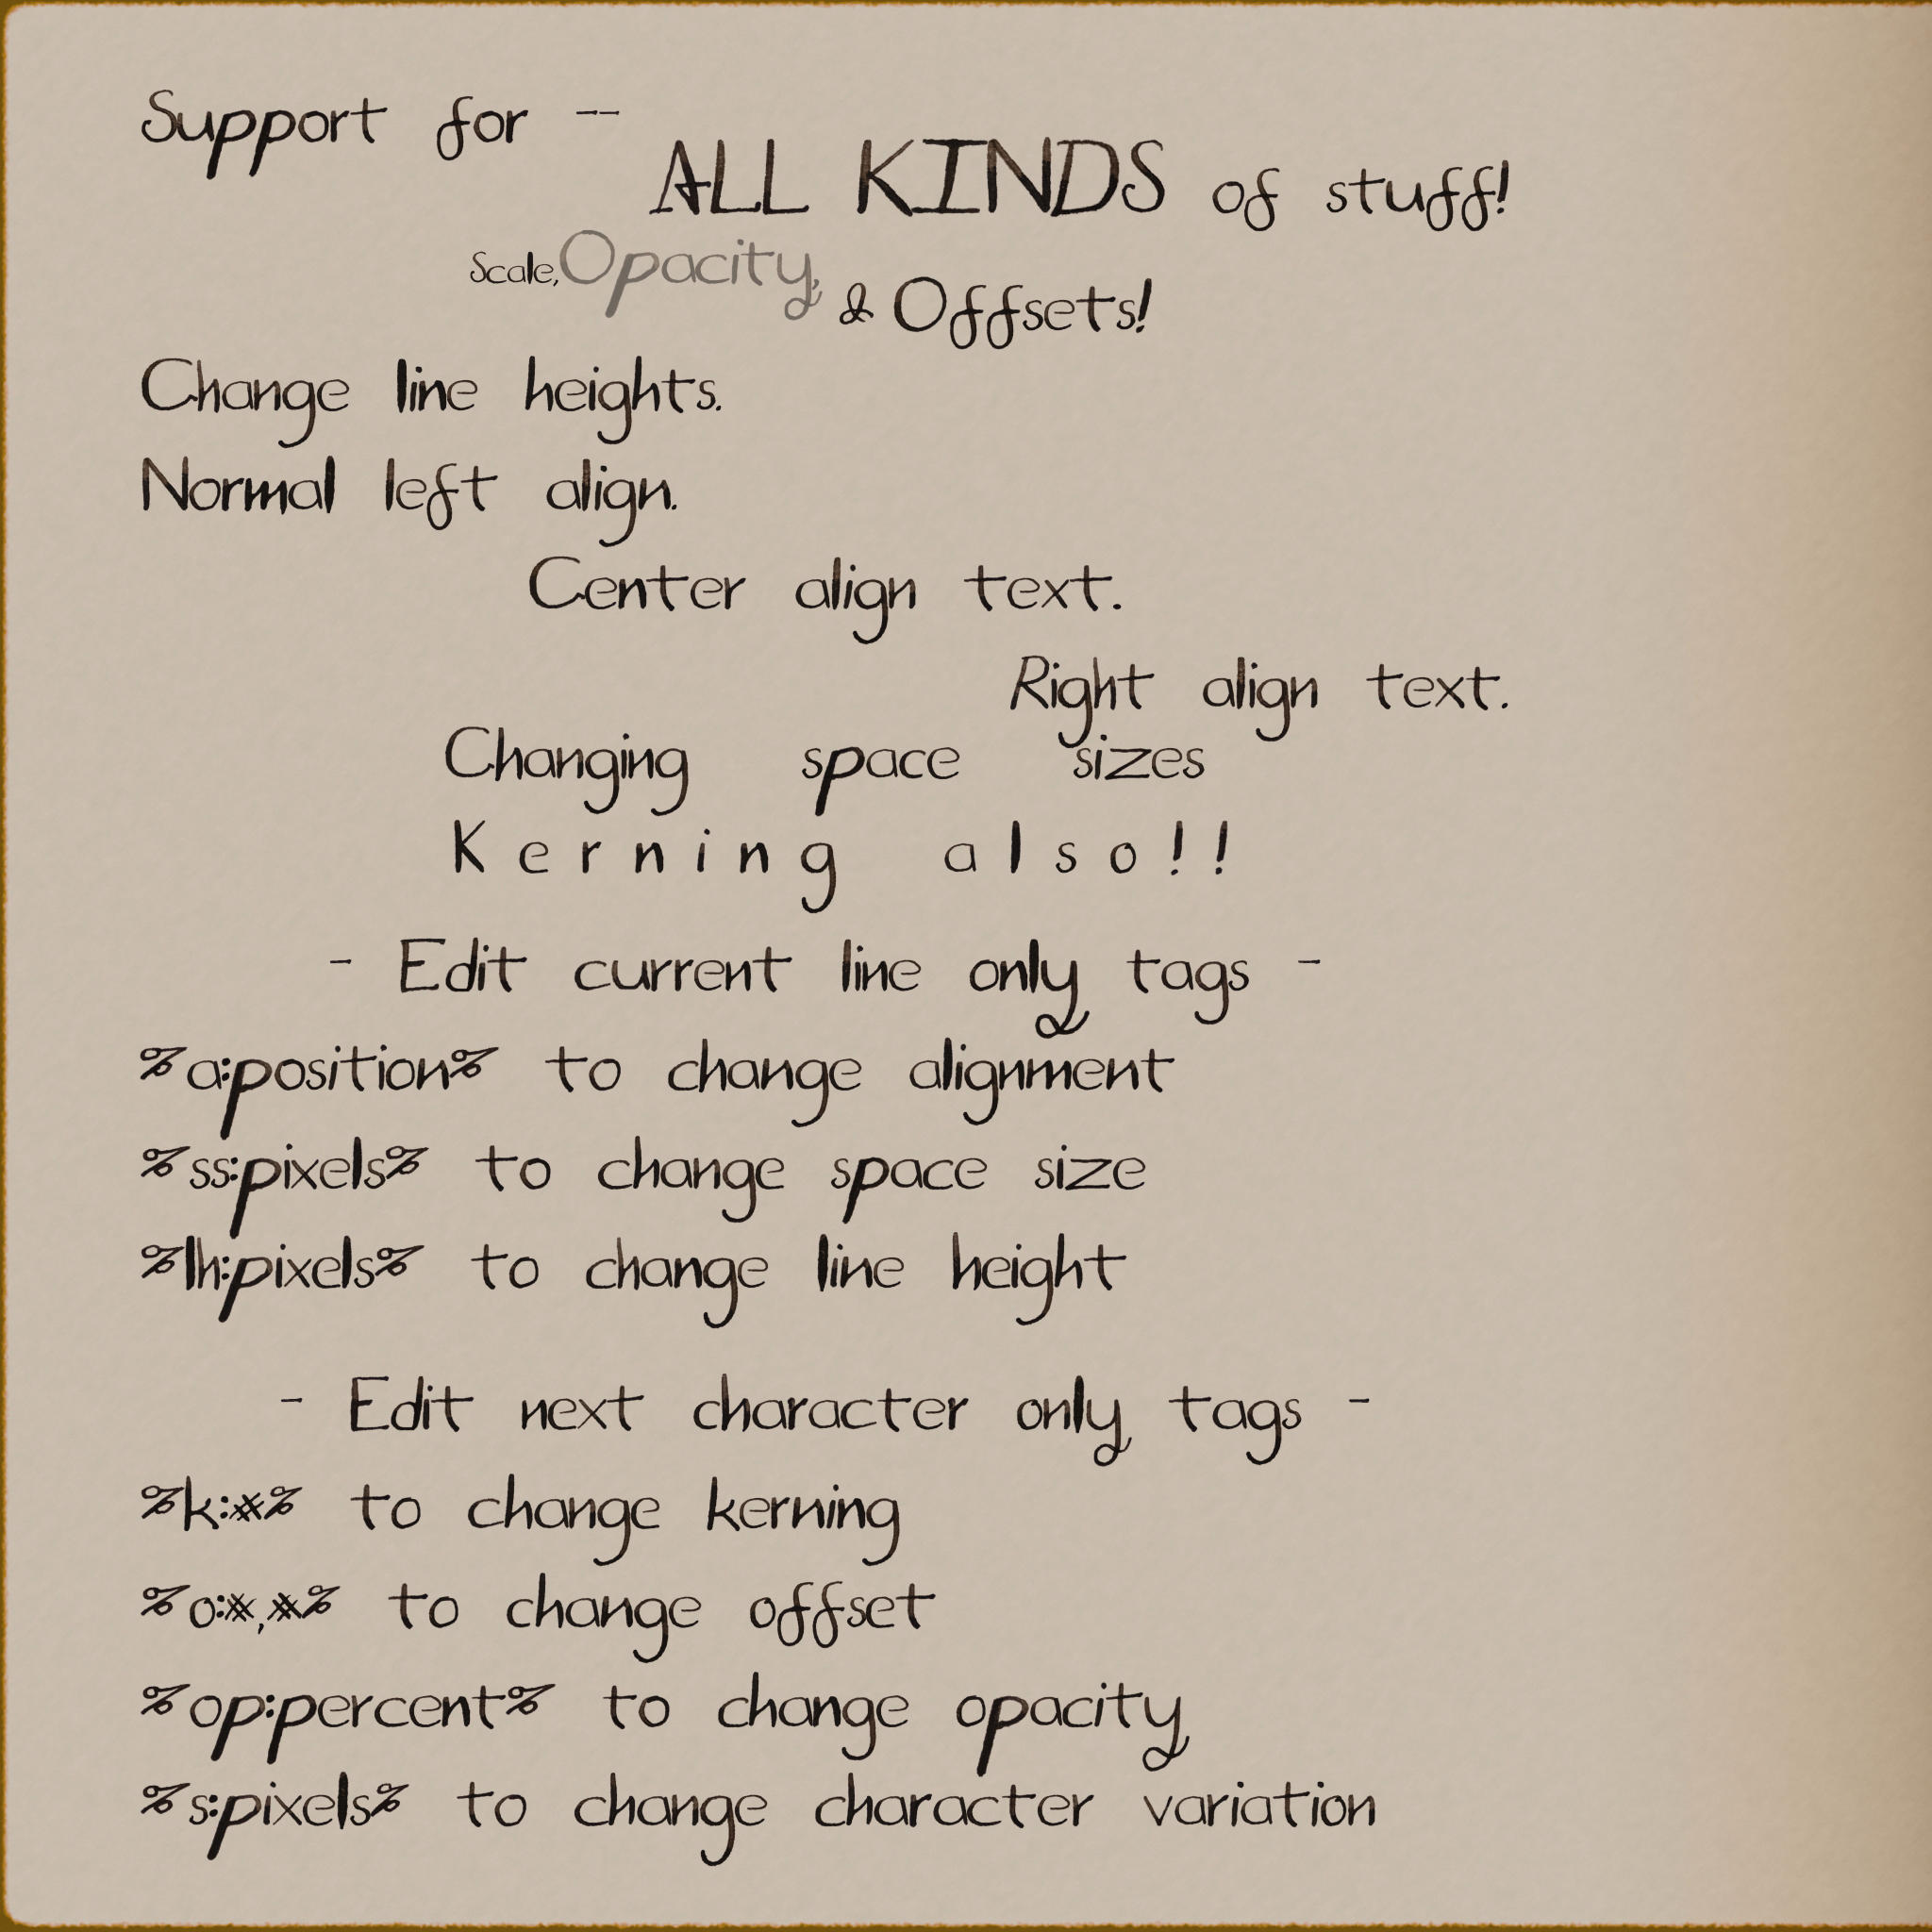 Support for --
ALL KINDS of stuff!
Scale, Opacity, & Offsets!
Change line heights.
Normal left align.
Center align text.
Right align text.
Changing space sizes
Kerning also!!
- Edit current line only tags -
%a:position% to change alignment
%ss:pixels% to change space size
%lh:pixels% to change line height
- Edit next character only tags -
%k:#% to change kerning
%o:#,#% to change offset
%op:percent% to change opacity
%s:pixels% to change character variation